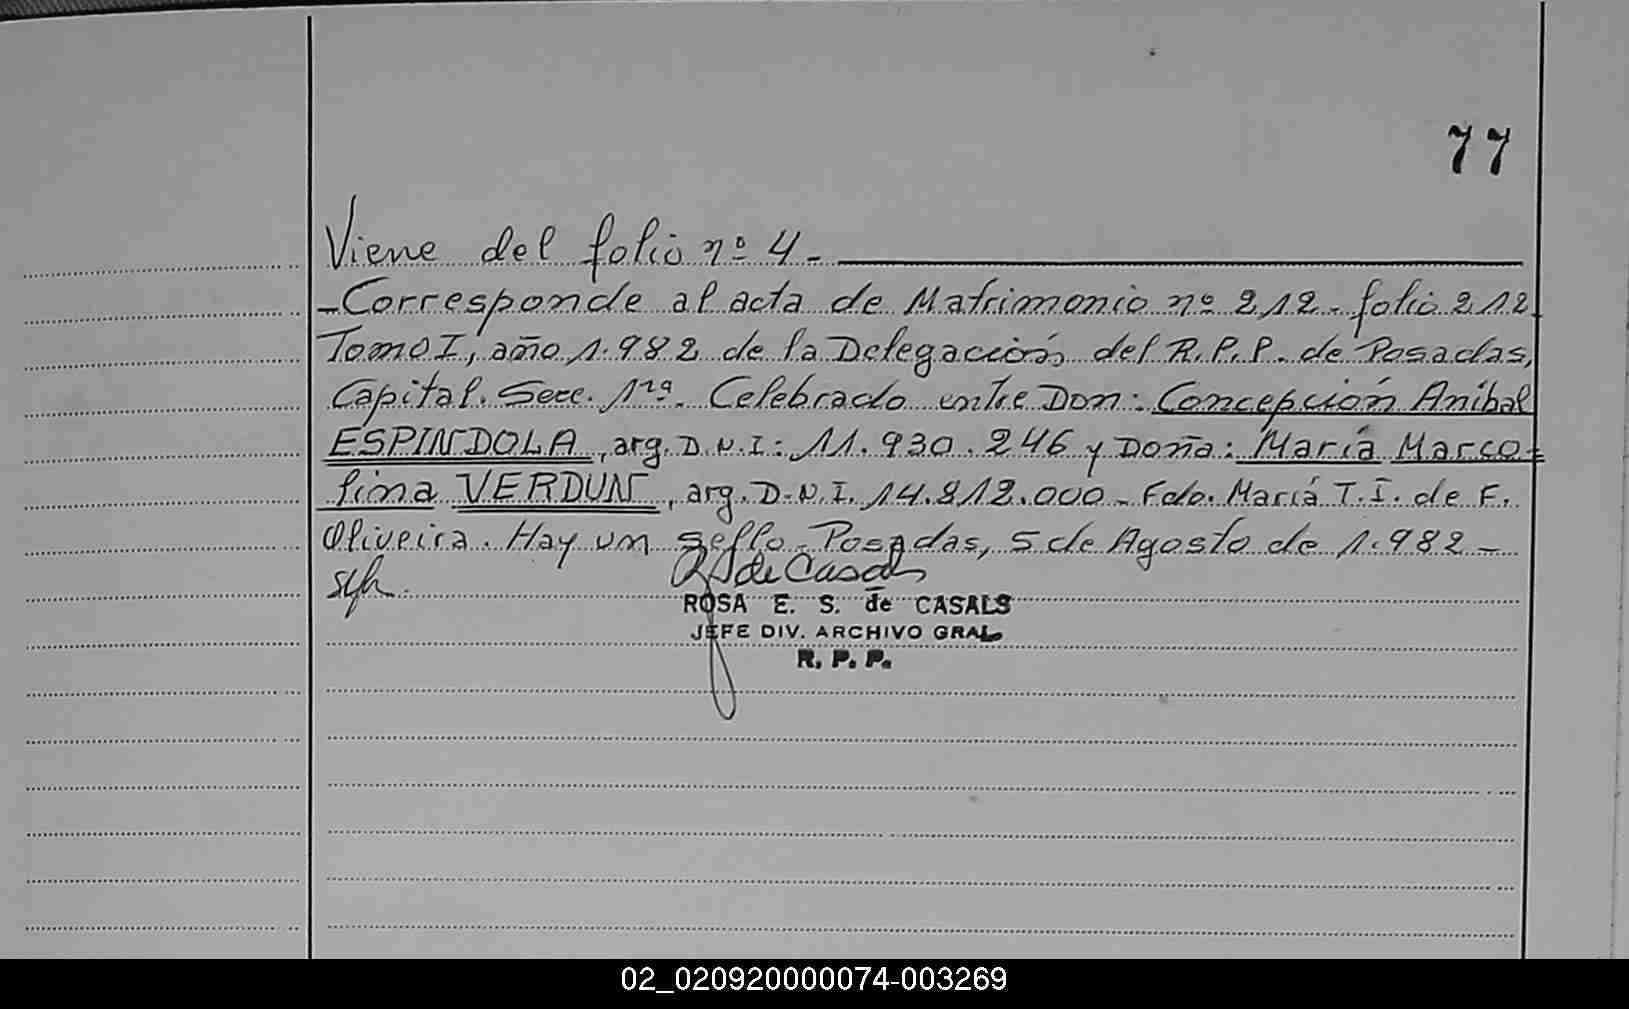 77
Viene del folio nº 4 -
- Corresponde al acta de Matrimonio nº 212 - folio 212
Tomo I, año 1.982 de la Delegación del R.P.P. de Posadas,
Capital. Secc. 1ra. Celebrado entre Don: Concepción Anibal
ESPINDOLA, arg. D.N.I: 11.930.246 y Doña: María Marco=
lina VERDUN, arg. D.N.I. 14.812.000 - Fdo. María T. I. de F.
Oliveira. Hay un sello - Posadas, 5 de Agosto de 1.982 -
de Casals
ROSA E. S. de CASALS
JEFE DIV. ARCHIVO GRAL
R. P. P.
02_020920000074-003269